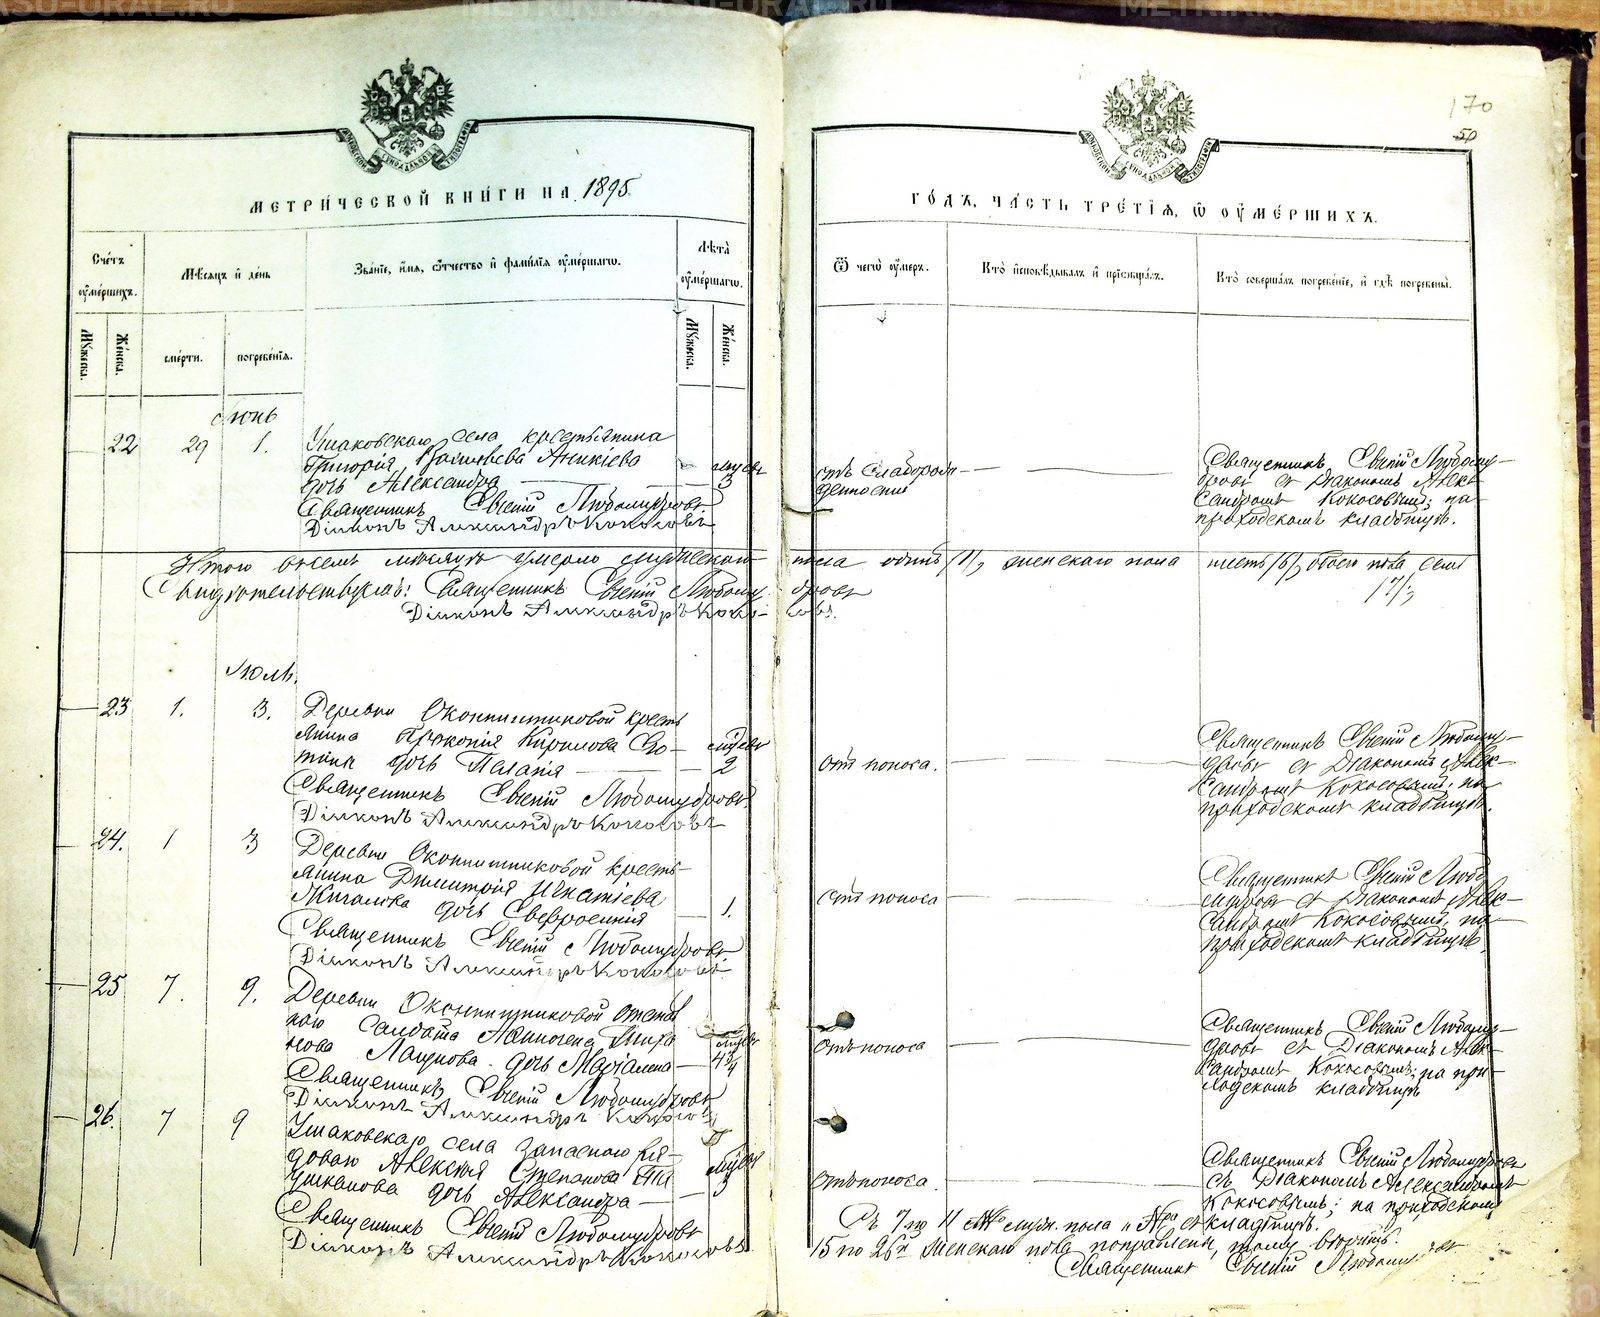 METRIKI.VASU-URAL.RU
170
50
МЕТРИ́ЧЕСКОЙ КНИ́ГИ НА 1895
ГО́ДЪ, ЧА́СТЬ ТРЕ́ТІѦ, Ѿ ОУ҆МЕ́РШИХЪ.
Сче́тъ оу҆ме́ршихъ.
Мѣ́сяцъ и҆ де́нь
Зва́нїе, и҆́мѧ, ѻ҆́тчество и҆ фамі́лїѧ оу҆ме́ршагѡ.
Лѣ́та оу҆ме́ршагѡ.
Ѿ чегѡ̀ оу҆́меръ.
Кто̀ и҆сповѣ́дывалъ и҆ прїѡбща́лъ.
Кто̀ соверша́лъ погребе́нїе, и҆ гдѣ̀ погребены̀.
Му́жеска.
Же́нска.
сме́рти.
погребе́нїѧ.
Му́жеска.
Же́нска.
Іюнь
22 29 1. Ушаковскаго села крестьянина
Григорія
дочь Александра 3
Священникъ Евгеній Любомудровъ
Діаконъ Александръ Кокосовъ
отъ слаборож-
денности
Священникъ Евгеній Любому-
дровъ съ Діакономъ Алек-
сандромъ Кокосовымъ; на
приходскомъ кладбищѣ.
Итого въ семъ мѣсяцѣ умерло мужескаго пола одинъ /1/, женскаго пола шесть /6/, обоего пола семь
/7/
Свидѣтельствуемъ: Священникъ Евгеній Любомудровъ
Діаконъ Александръ Кокосовъ.
Іюль.
23 1. 3. Деревни крестья-
янина Прокопія Кирилова
дочь Пелагія 2
Священникъ Евгеній Любомудровъ
Діаконъ Александръ Кокосовъ
отъ поноса.
Священникъ Евгеній Любому-
дровъ съ Діакономъ Алек-
сандромъ Кокосовымъ; на
приходскомъ кладбищѣ.
24. 1 3 Деревни кресть-
янина Димитрія Игнатіева
дочь Евфросинія 1.
Священникъ Евгеній Любомудровъ
Діаконъ Александръ Кокосовъ
отъ поноса
Священникъ Евгеній Любо-
мудровъ съ Діакономъ Алек-
сандромъ Кокосовымъ; на
приходскомъ кладбищѣ
25 7. 9. Деревни
солдата
дочь
Священникъ Евгеній Любомудровъ
Діаконъ Александръ Кокосовъ
отъ поноса
Священникъ Евгеній Любому-
дровъ съ Діакономъ Алек-
сандромъ Кокосовымъ; на при-
ходскомъ кладбищѣ
26. 7 9 Ушаковскаго села запаснаго ря-
доваго Алексѣя Степанова
дочь Александра 3
Священникъ Евгеній Любомудровъ
Діаконъ Александръ Кокосовъ
отъ поноса.
Священникъ Евгеній Любомудровъ
съ Діакономъ Александромъ
Кокосовымъ; на приходскомъ
кладбищѣ.
Съ 7 по 11 № муж. пола и съ
15 по 26й женскаго пола поправлены, тому вѣрить.
Священникъ Евгеній Любомудровъ